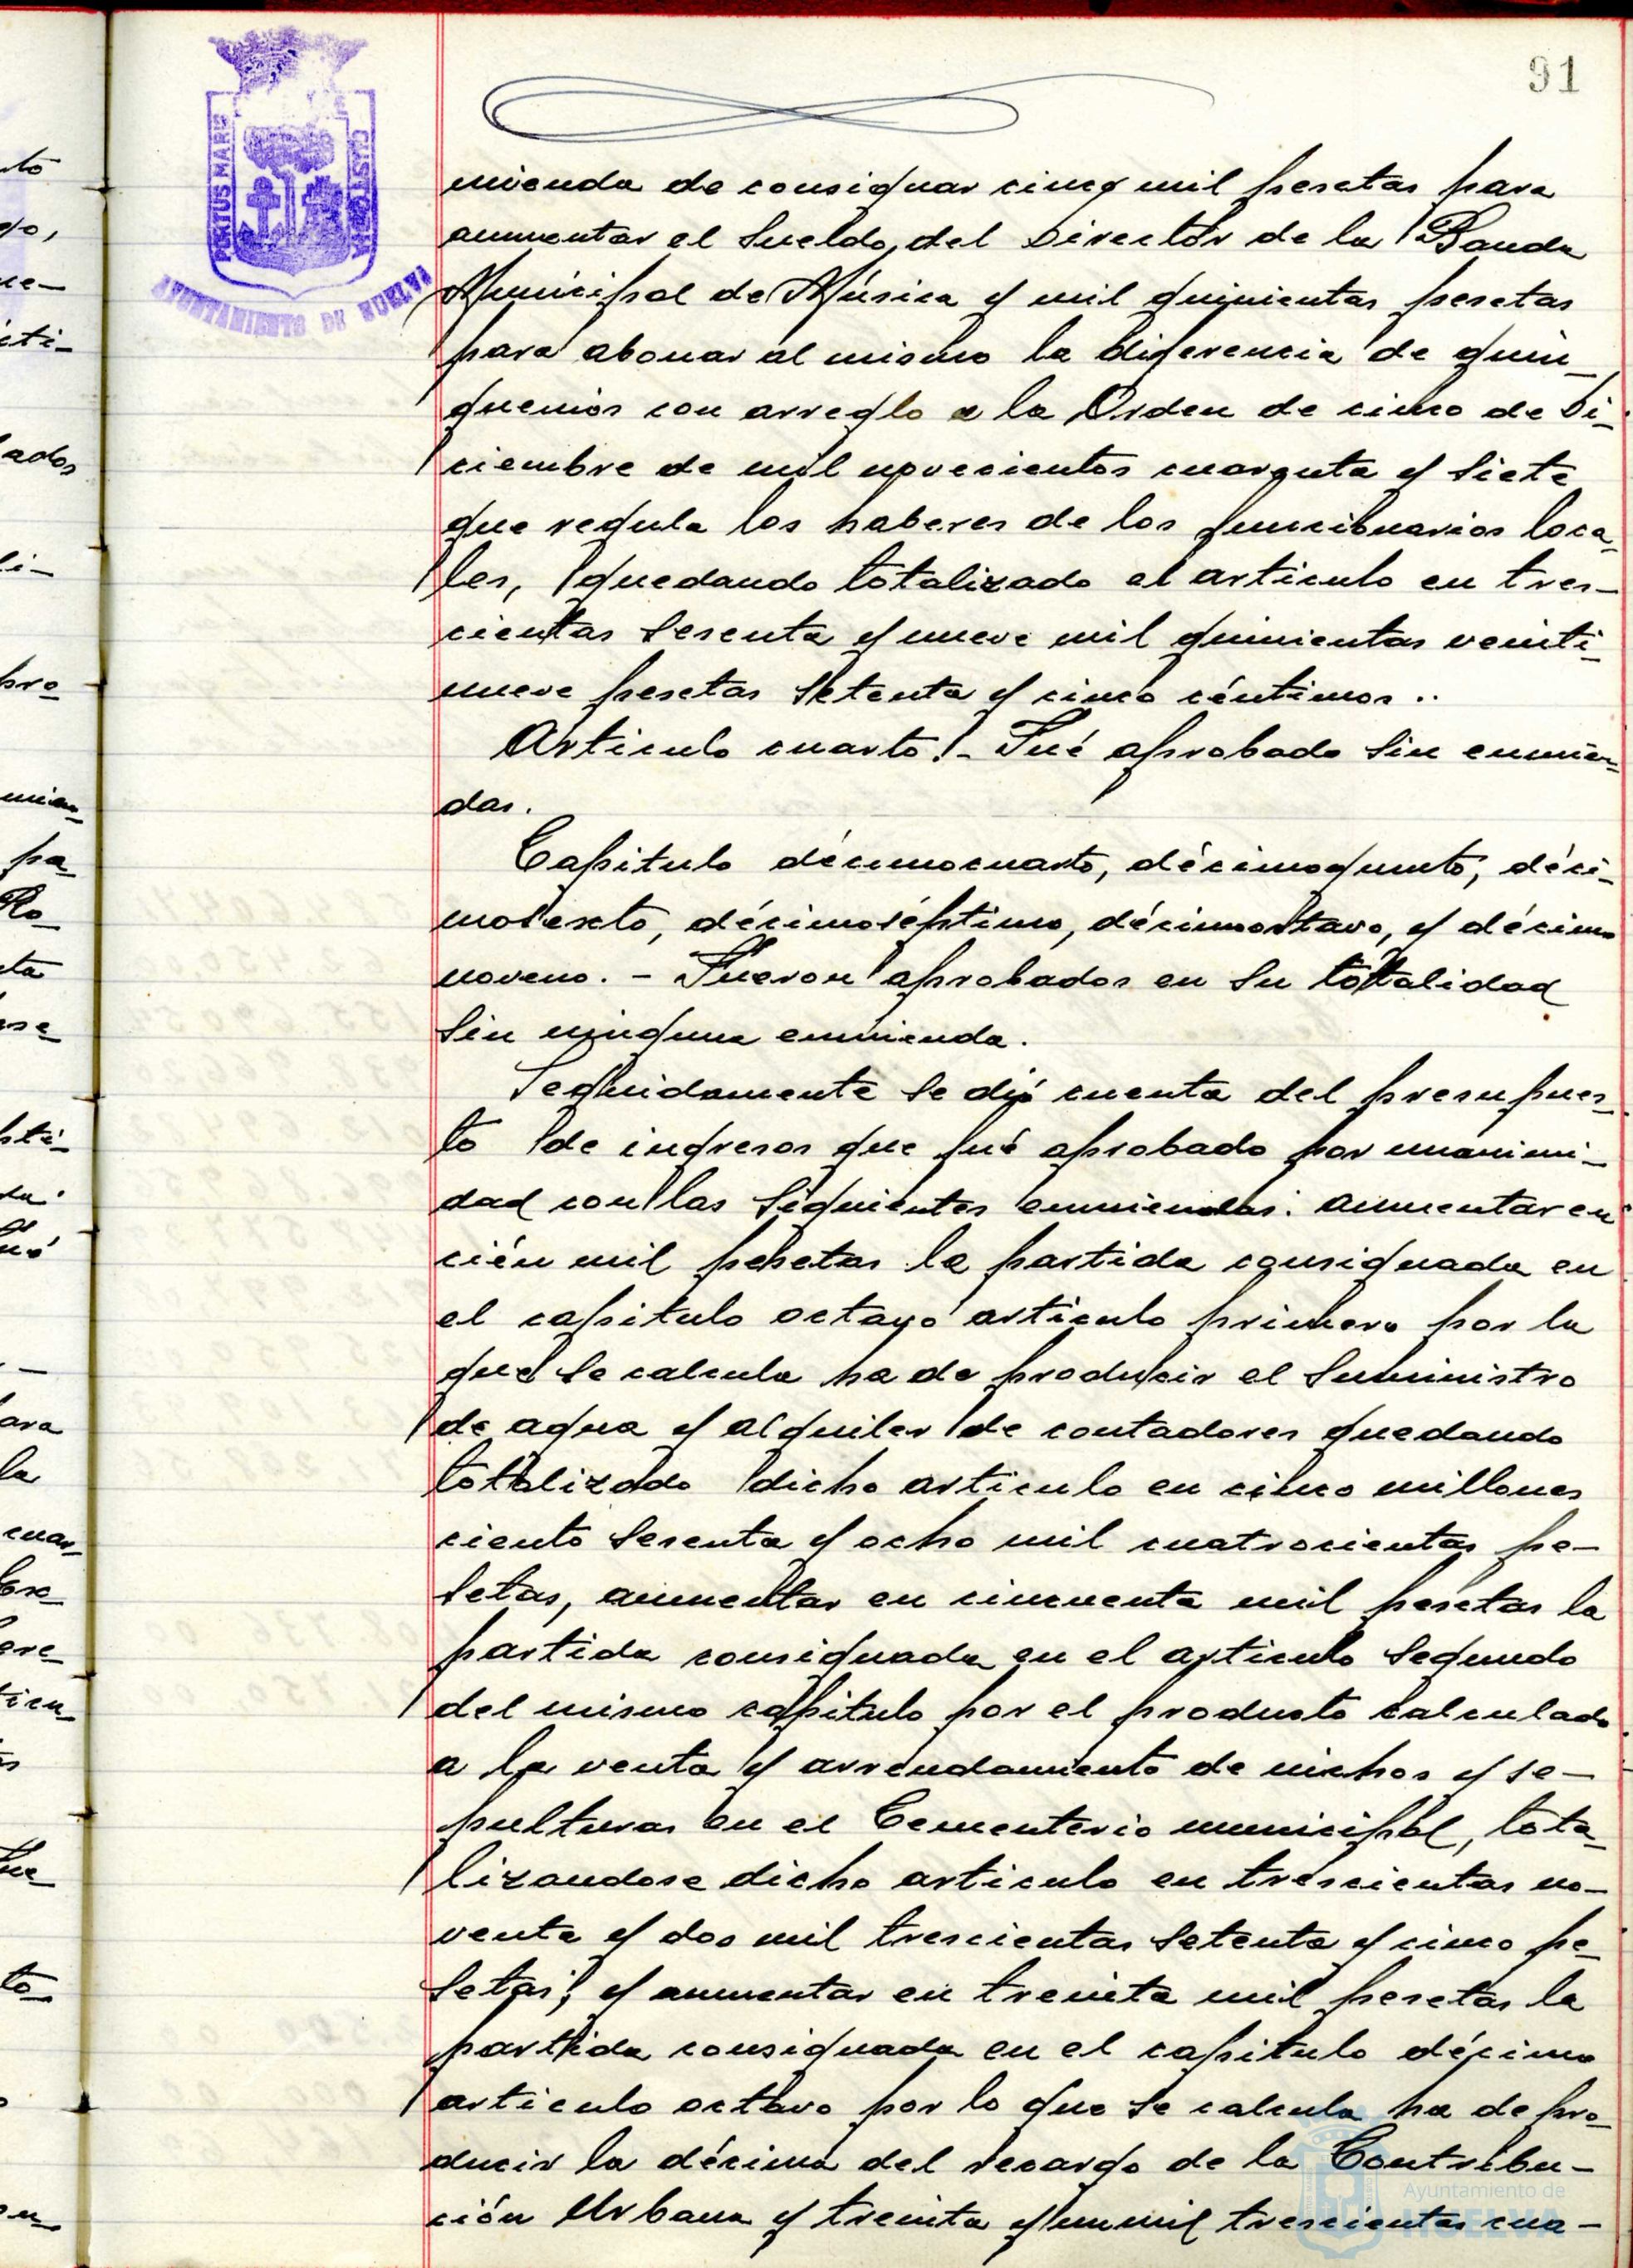 91
PORTUS MARIS
ET TERRÆ CUSTODIA
AYUNTAMIENTO DE HUELVA
mienda de consignar cinco mil pesetas para
aumentar el sueldo, del Director de la Banda
Municipal de Música y mil quinientas pesetas
para abonar al mismo la diferencia de quin-
quenios con arreglo a la Orden de cinco de Di-
ciembre de mil novecientos cuarenta y siete
que regula los haberes de los funcionarios loca-
les, quedando totalizado el articulo en tres-
cientas sesenta y nueve mil quinientas veinti-
nueve pesetas setenta y cinco céntimos..
Articulo cuarto.- Fué aprobado sin enmien-
das.
Capitulo décimocuarto, décimoquinto, déci-
mosexto, décimoséptimo, décimoctavo, y décimo
noveno. - Fueron aprobados en su totalidad
sin ninguna enmienda.
Seguidamente se dió cuenta del presupues-
to de ingresos que fué aprobado por unanimi-
dad con las siguientes enmiendas: aumentar en
cién mil pesetas la partida consignada en
el capitulo octavo articulo primero por la
que se calcula ha de producir el suministro
de agua y alquiler de contadores quedando
totalizado dicho articulo en cinco millones
ciento sesenta y ocho mil cuatrocientas pe-
setas, aumentar en cincuenta mil pesetas la
partida consignada en el articulo segundo
del mismo capitulo por el producto calculado
a la venta y arrendamiento de nichos y se-
pulturas en el Cementerio municipal, tota-
lizandose dicho articulo en trescientas no-
venta y dos mil trescientas setenta y cinco pe-
setas; y aumentar en treinta mil pesetas la
partida consignada en el capitulo décimo
articulo octavo por lo que se calcula ha de pro-
ducir la décima del recargo de la Contribu-
ción Urbana y treinta y un mil trescientas cua-
Ayuntamiento de
HUELVA